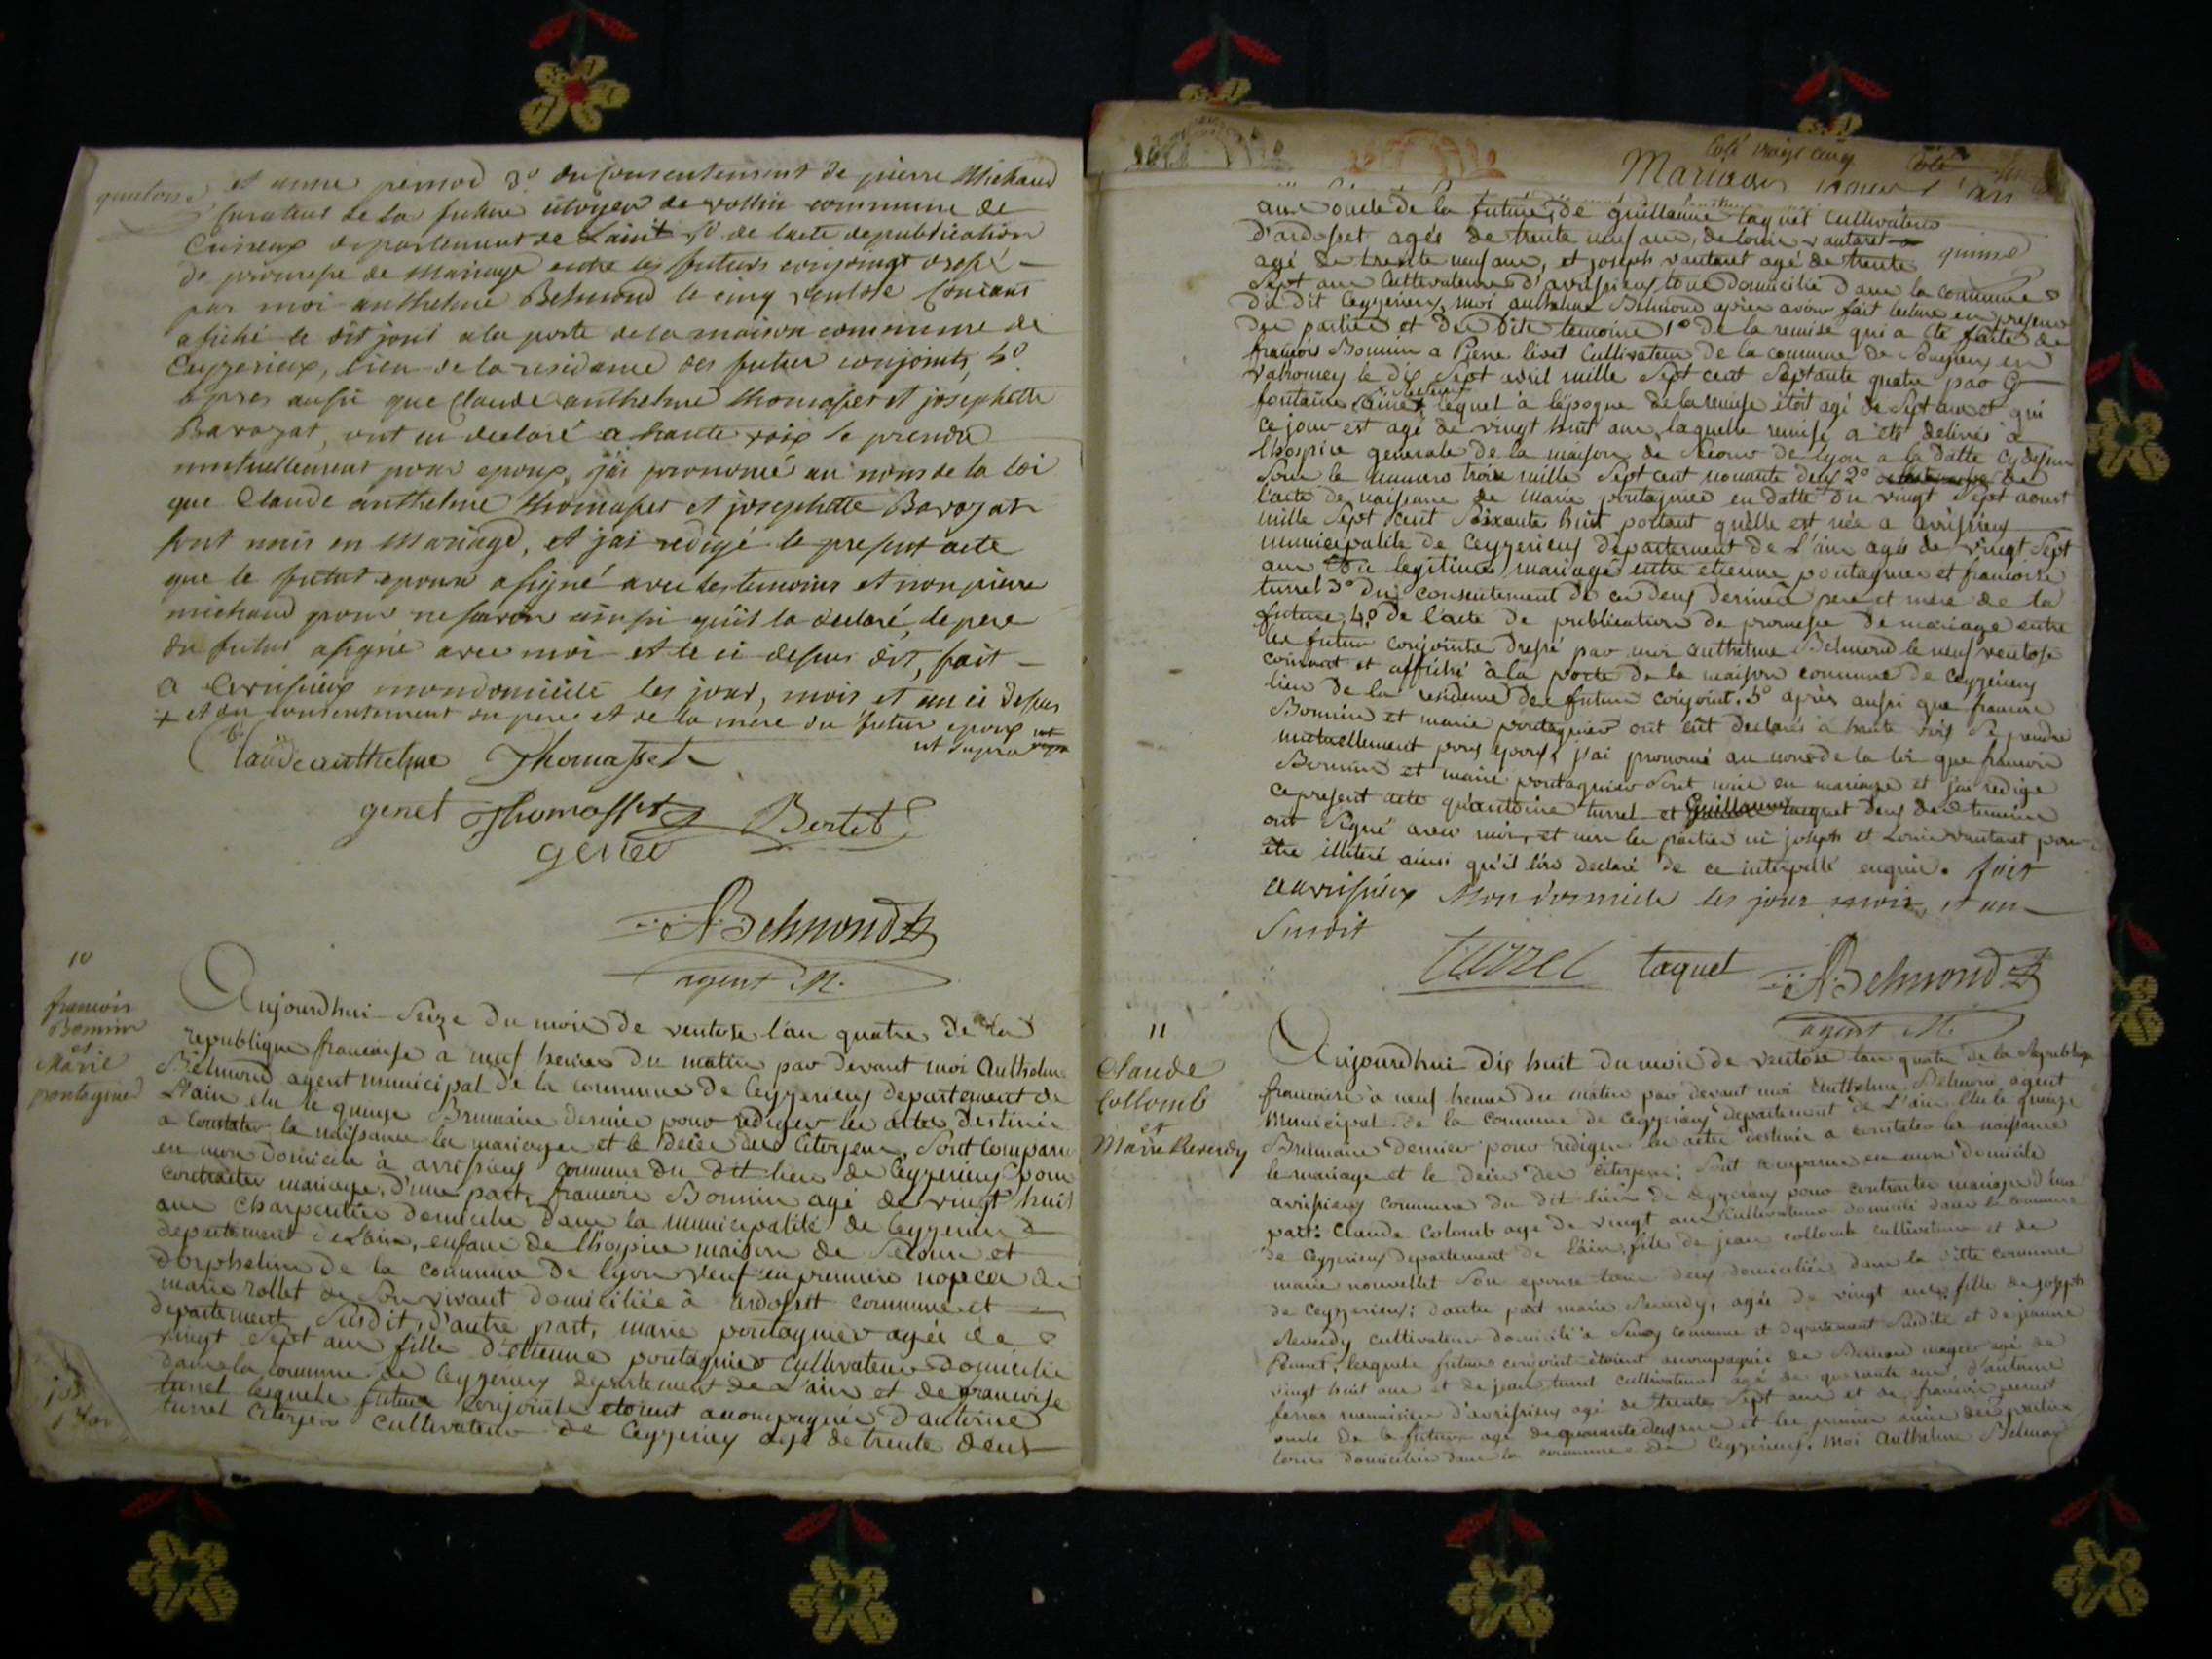 quatorze
et anne pernod 3º du Consentement de pierre Michaud
Curateur de la future citoyen de rollin commune de
Cuireux departement de Lain 4º de lacte de publication
de promesse de Mariage entre les futurs conjoings dressé
par moi anthelme Belmond le cinq ventose Courant
afiché le dit jour a la porte de la maison commune de
Ceyzerieux, lieu de la residance des futur conjoints, 5º
apres aussi que Claude anthelme thomasset et josephette
Bavozat, ont eu declaré a haute voix se prendre
mutuellement pour epoux, j'ai prononcé au nom de la loi
que Claude anthelme thomasset et josephette Bavozat
sont unis en Mariage, et j'ai redigé le present acte
que le futur epoux a signé avec les temoins et non pierre
michaud pour ne savoir ainsi qu'il la declaré, le pere
du futur a signé avec moi et le ci dessus dit, fait
a avrissieux mon domicile les jour, mois et an ci dessus
+ et du consentement du pere et de la mere du futur epoux
ut supra
Claude anthelme Thomasset
genet Thomasset Bertet
genet
A Belmond
agent M.
10
francois
Bonnin
et
Marie
pontagnier
Aujourdhui Seize du mois de ventose l'an quatre de la
republique francaise à neuf heures du matin par devant moi Anthelme
Belmond agent municipal de la commune de Ceyzerieux departement de
L'ain elu le quinze Brumaire dernier pour rediger les actes destinés
a Constater la naissance les mariages et le Décès des Citoyens, Sont Comparus
en mon domicile à avrissieux commune du dit lieu de Ceyzerieux pour
contracter mariage, d'une part, francois Bonnin agé de vingt huit
ans charpentier domicilié dans la municipalité de Ceyzerieux
departement de Lain, enfant de l'hospice maison de Secour et
d'orphelins de la commune de Lyon veuf en premiere nopces de
marie rollet de Son vivant domiciliée à ardosset commune et
departement Susdit, d'autre part, marie pontagnier agée de
vingt Sept ans fille d'etienne pontagnier Cultivateur domicilié
dans la commune de Ceyzerieux departement de L'ain et de francoise
turrel lesquels futurs Conjoints etoient accompagnés d'antoine
turrel Citoyen Cultivateur de Ceyzerieux agé de trente deux
Coté vingt cinq
quinze
ans oncle de la future, de guillaume taquet Cultivateur
D'ardosset agés de trente neuf ans, de louis vautaret
agé de trente neuf ans, et joseph vautaret agé de trente
Sept ans Cultivateurs d'avrissieux tous domiciliés dans la commune
du dit Ceyzerieux, moi anthelme Belmond après avoir fait lecture en presence
des parties et des Dits temoins 1º de la remise qui a été faite de
francois Bonnin a Pierre livet Cultivateur de la commune de Songieux en
valromey le dix Sept avril mille Sept cent Septante quatre par G
fontaine ainé lequel à l'époque de la remise étoit agé de Sept ans et qui
Ce jour est agé de vingt huit ans, laquelle remise a été delivrée à
l'hospice generale de la maison de Secour de lyon a la datte Cy dessus
Sous le numero trois mille Sept cent nonante deux 2º de
l'acte de naissance de marie pontagnier en datte du vingt Sept aoust
mille Sept cent Soixante huit portant quelle est née a avrissieux
municipalité de Ceyzerieux departement de L'ain agée de vingt Sept
ans Du legitime mariage entre etienne pontagnier et francoise
turrel 3º Du consentement de ces deux derniers pere et mere de la
future, 4º de l'acte de publication de promesse de mariage entre
les futurs conjoints dressé par moi anthelme Belmond le neuf ventose
courant et affiché à la porte de la maison commune de Ceyzerieux
lieu de la residence des futurs conjoint. 5º après aussi que francois
Bonnin et marie pontagnier ont eût declarés a haute voix Se prendre
mutuellement pour epoux, j'ai prononcé au nom de la loi que francois
Bonnin et marie pontagnier Sont unis en mariage et j'ai redigé
ce present acte qu'antoine turrel et Guillaume taquet deux des temoins
ont Signé avec moi, et non les parties ni joseph et Louis vautaret pour
être illitéré ainsi qu'il l'on declaré de ce interpellé enquis. fait
a avrissieux Mon domicile les jour mois et an
Susdit
turrel taquet A Belmond
agent M.
11
Claude
Collomb
et
Marie Reverdy
Aujourdhui dix huit du mois de ventose lan quatre de la Republique
francaise à neuf heures du matin par devant moi anthelme Belmond agent
Municipal de la Commune de Ceyzerieux departement de L'ain elu le quinze
Brumaire dernier pour rediger les actes destinés a constater les naissances
le mariage et le Décès des citoyens: Sont comparus en mon domicile
avrissieux commune du dit lieu de Ceyzerieux pour contracter mariage d'une
part: Claude Colomb agé de vingt ans Cultivateur domicilié dans la commune
de Ceyzerieux departement de Lain, fils de jean collomb cultivateur et de
marie nouvellet Son epouse tous deux domiciliés dans la ditte commune
de Ceyzerieux; d'autre part marie Reverdy, agée de vingt ans, fille de joseph
Reverdy cultivateur domicilié à commune et departement Susdite et de jeanne
lesquels futurs conjoint étoient accompagnés de Bernard agé de
vingt huit ans et de jean turrel cultivateur agé de quarante ans, d'antoine
menuisier d'avrissieux agé de trente Sept ans et de francois
oncle de la future agé de quarante deux ans et les premiers amis des
tous domiciliés dans la commune de Ceyzerieux. Moi Anthelme Belmond